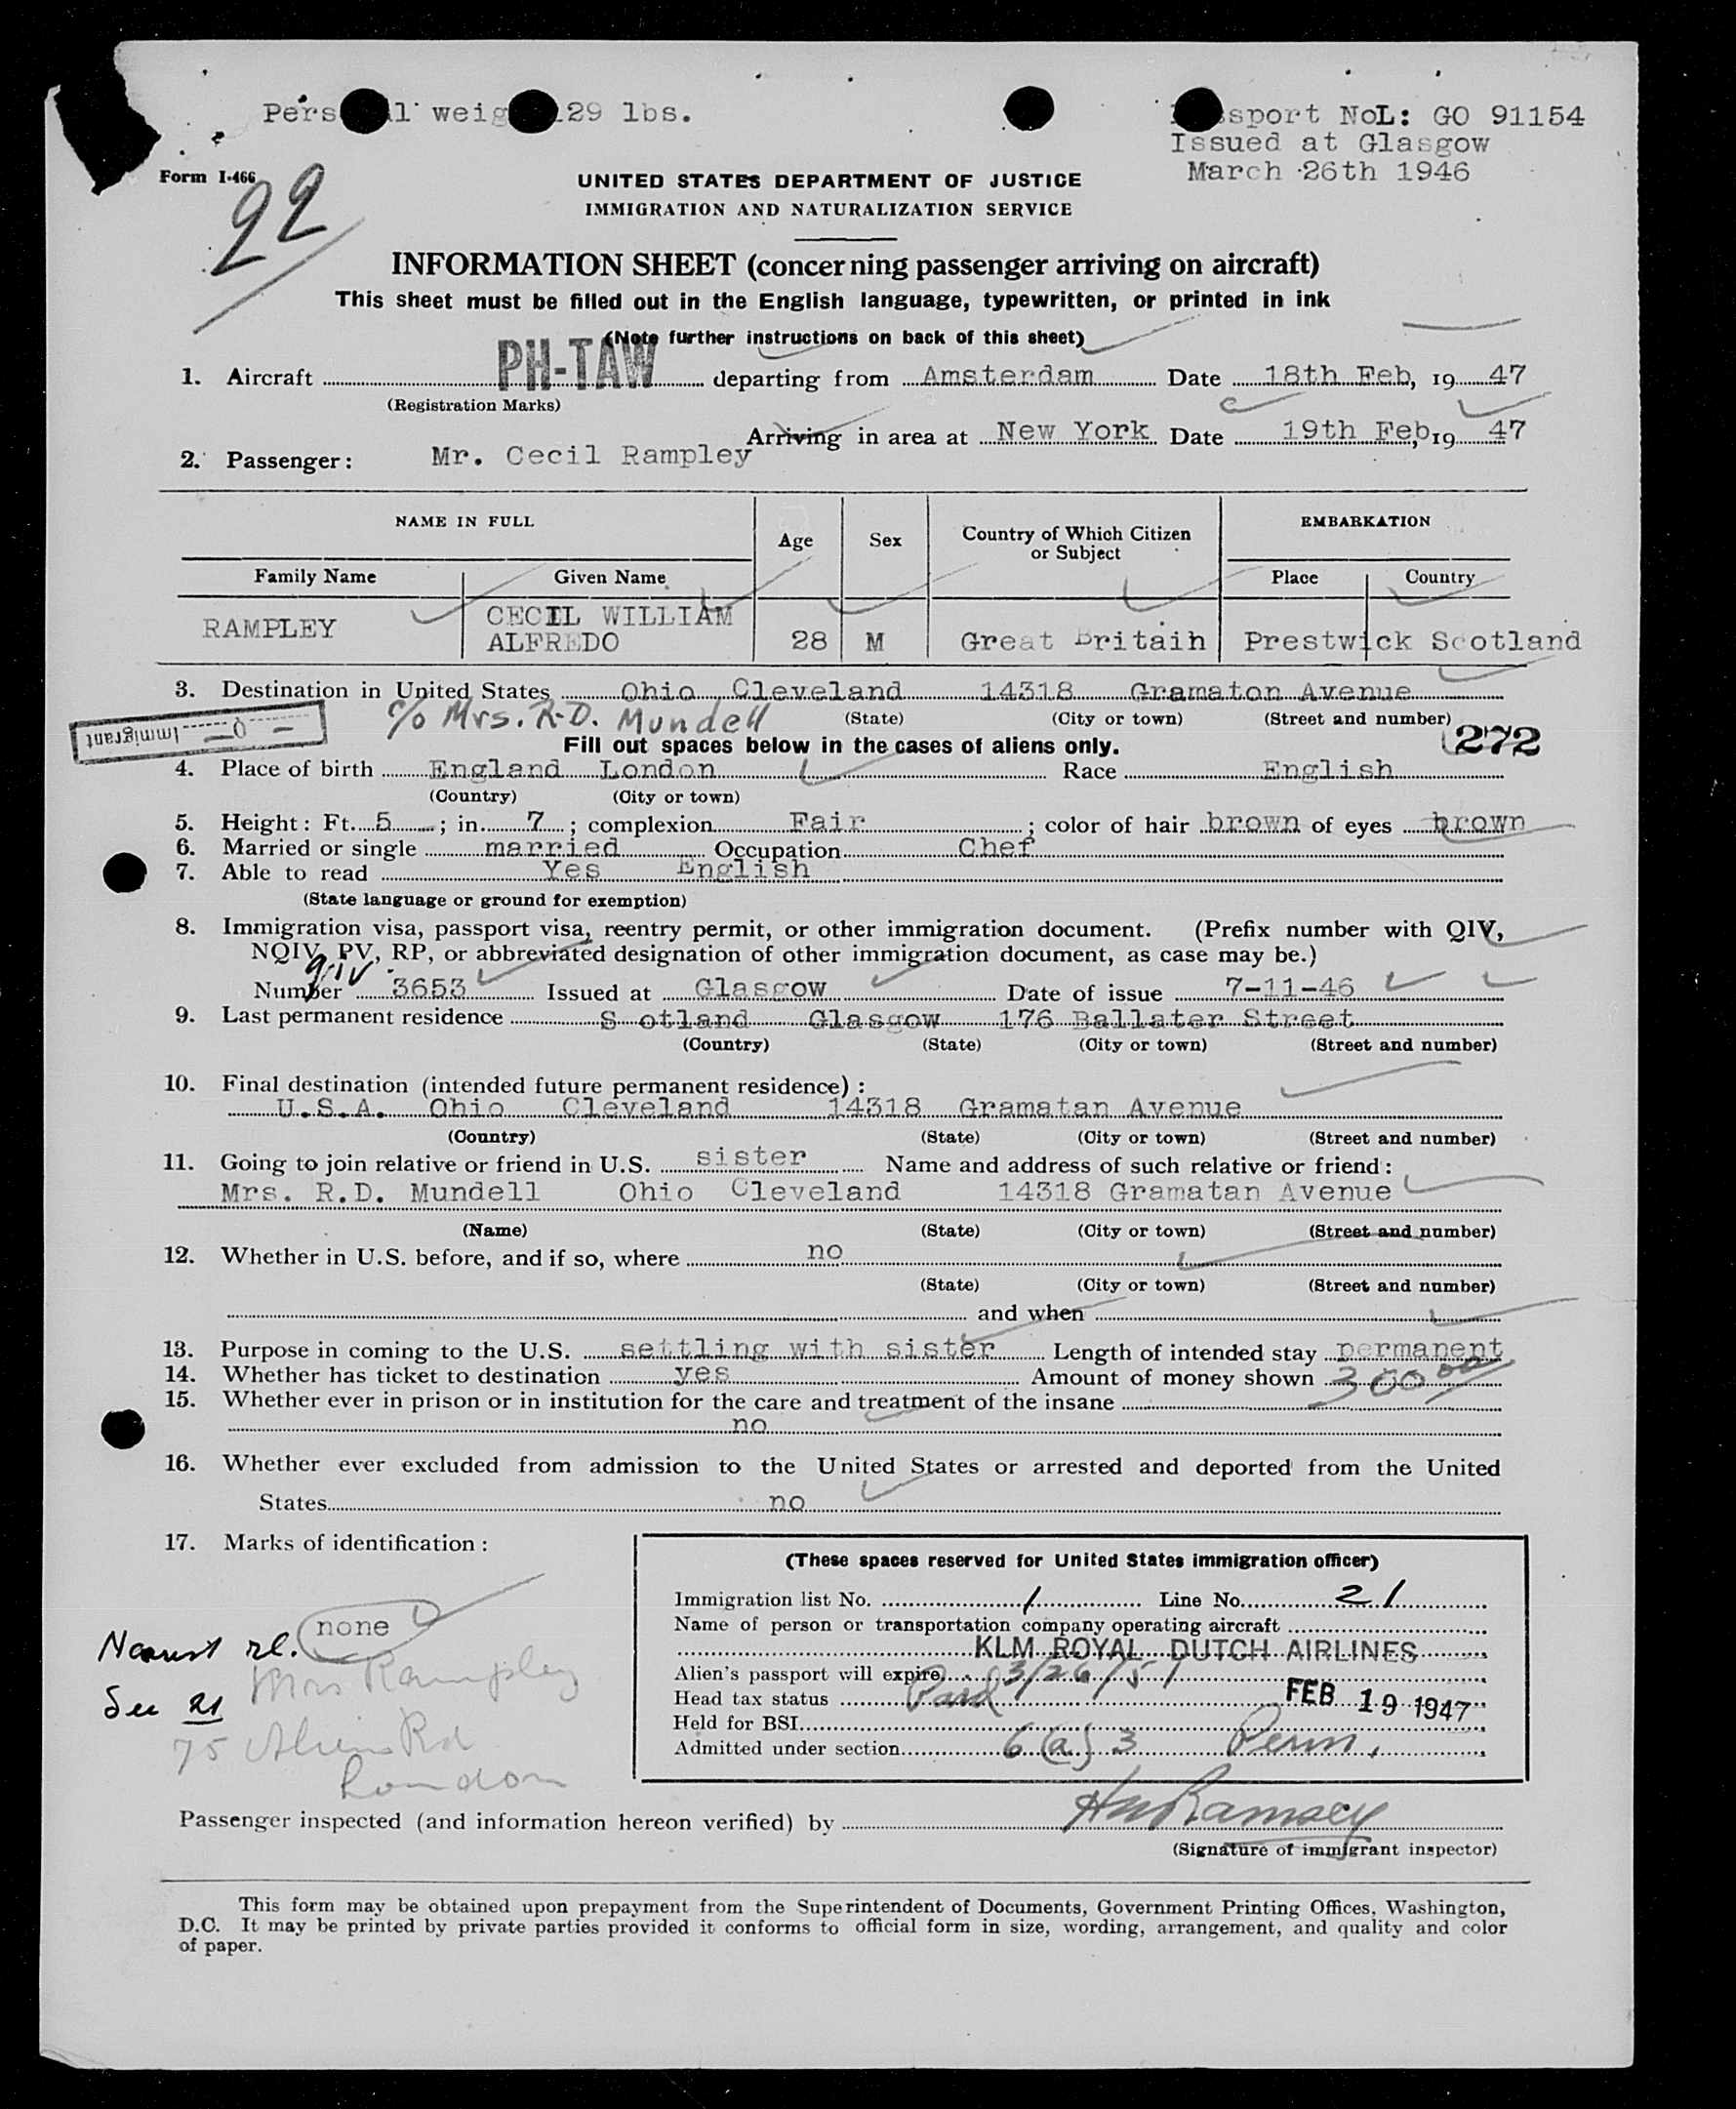 Pers l weig 29 lbs.
sport NoL: GO 91154
Issued at Glasgow
March 26th 1946
Form I-466
22
UNITED STATES DEPARTMENT OF JUSTICE
IMMIGRATION AND NATURALIZATION SERVICE
INFORMATION SHEET (concerning passenger arriving on aircraft)
This sheet must be filled out in the English language, typewritten, or printed in ink
(Note further instructions on back of this sheet)
1. Aircraft PH-TAW departing from Amsterdam Date 18th Feb, 19 47
(Registration Marks)
Arriving in area at New York Date 19th Feb, 19 47
2. Passenger: Mr. Cecil Rampley
NAME IN FULL Age Sex Country of Which Citizen or Subject EMBARKATION
Family Name Given Name Place Country
RAMPLEY CECIL WILLIAM
ALFREDO 28 M Great Britain Prestwick Scotland
3. Destination in United States Ohio Cleveland 14318 Gramaton Avenue
c/o Mrs. R.D. Mundell (State) (City or town) (Street and number)
— Q — Immigrant
Fill out spaces below in the cases of aliens only. 272
4. Place of birth England London Race English
(Country) (City or town)
5. Height: Ft. 5 ; in. 7 ; complexion Fair ; color of hair brown of eyes brown
6. Married or single married Occupation Chef
7. Able to read Yes English
(State language or ground for exemption)
8. Immigration visa, passport visa, reentry permit, or other immigration document. (Prefix number with QIV,
NQIV, PV, RP, or abbreviated designation of other immigration document, as case may be.)
qiv
Number 3653 Issued at Glasgow Date of issue 7-11-46
9. Last permanent residence S otland Glasgow 176 Ballater Street
(Country) (State) (City or town) (Street and number)
10. Final destination (intended future permanent residence) :
U.S.A. Ohio Cleveland 14318 Gramatan Avenue
(Country) (State) (City or town) (Street and number)
11. Going to join relative or friend in U.S. sister Name and address of such relative or friend :
Mrs. R.D. Mundell Ohio Cleveland 14318 Gramatan Avenue
(Name) (State) (City or town) (Street and number)
12. Whether in U.S. before, and if so, where no
(State) (City or town) (Street and number)
and when
13. Purpose in coming to the U.S. settling with sister Length of intended stay permanent
14. Whether has ticket to destination yes Amount of money shown 300 00
15. Whether ever in prison or in institution for the care and treatment of the insane
no
16. Whether ever excluded from admission to the United States or arrested and deported from the United
States no
17. Marks of identification :
none
Nearest rl.
Mrs Rampley
See 21
75 Rd
London
(These spaces reserved for United States immigration officer)
Immigration list No. 1 Line No. 21
Name of person or transportation company operating aircraft
KLM ROYAL DUTCH AIRLINES
Alien's passport will expire 3/26/51
Head tax status Paid FEB 19 1947
Held for BSI
Admitted under section 6 (a) 3 Perm.
Passenger inspected (and information hereon verified) by Ramsey
(Signature of immigrant inspector)
This form may be obtained upon prepayment from the Superintendent of Documents, Government Printing Offices, Washington,
D.C. It may be printed by private parties provided it conforms to official form in size, wording, arrangement, and quality and color
of paper.